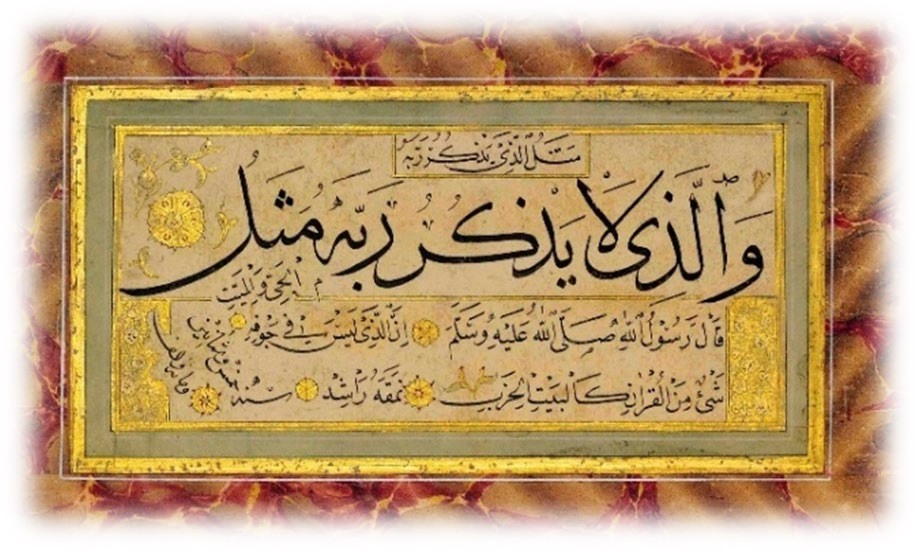 مَثَلُ الَّذِي يَذْكُرُ رَبَّهُ
وَالَّذِى لَا يَذْكُرُ رَبَّهُ مَثَلُ
الْحَيِّ وَالْمَيِّتِ
قَالَ رَسُولُ اللهِ صَلَّى اللهُ عَلَيْهِ وَسَلَّمَ إِنَّ الَّذِي لَيْسَ فِي جَوْفِهِ
شَيْئٌ مِنَ الْقُرْآنِ كَالْبَيْتِ الْخَرِبِ نمقه راشد سنه